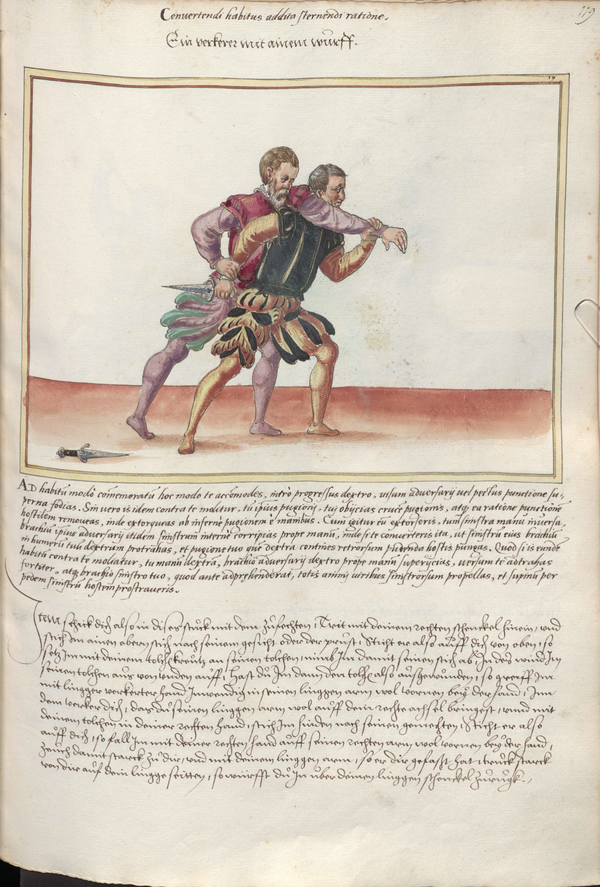 Convertendi habitus addita sternendi ratione.
119
Ein verkerer mit ainem wurff.
AD habitũ modõ cõmemoratũ hoc modo te accõmodes, intrò progressus dextro, uisum aduersarij uel pectus punctione su-
perna fodias. Sin uero is idem contra te molitur, tu ipsius pugioni, tuj obijcias crucẽ pugionis, atq; ea ratione punctionẽ
hostilem remoueas, inde extorqueas ab inferne pugionem è manibus. Cum igitur eũ extorseris, tum sinistra manu inuersa,
brachiũ ipsius aduersarij itidem sinistrum internè corripias prope manũ, inde sic te conuerteris ita, ut sinistrũ eius brachiũ
in humerũ tuũ dextrum protrahas, et pugione tuo quẽ dextra contines retrorsum hostẽ pungas. Quod si is eundẽ
habitũ contra te moliatur, tu manũ dextrã, brachio aduersarij dextro prope manũ superijcias, uersum te adtrahas
fortiter, atq; brachio sinistro tuo, quod ante adprehenderat, totis animj uiribus sinistrorsum propellas, et supinũ per
pedem sinistrũ hostem prostraueris.
Item schick dich also in dises stuck mit dem zufechten, Trit mit deinem rechten schenckel hinein, und
stich im ainen obern stich nach seinem gesicht oder der prust, Sticht er also auff dich von oben, so
setz Im mit deinem tolchkreutz an seinen tolchen, nimb Im damit seinen stich ab Inndes wind Im
seinen tolchen aus von unden auff, Hast du Im dann den tolchen also ausgewunden, so greiff Im
mit lingger verkerter hand Inwendig in seinen linggen arm wol vornen bey der hand, Inn
dem verker dich, das du seinen linggen arm wol auff dein rechte achsel bringest, und mit
deinem tolchen in deiner rechten hand, stich Im hinden nach seinen gemechten, Sticht er also
auff dich, so fall Im mit deiner rechten hand auff seinen rechten arm wol vornen bey der hand,
zeuch damit starck zu dir, und mit deinem linggen arm, so er dir gefasst hat, truck starck
von dir auf dein lingge seitten, so wurffst du In uber deinen linggen schenckel zuruck.